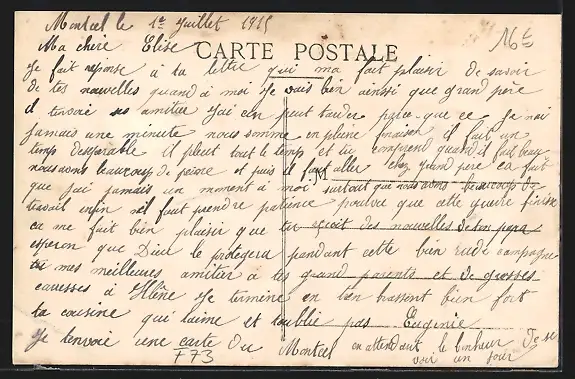 Montcel le 1er Juillet 1915
16 f
Ma chère Elise
CARTE POSTALE
Je fait réponse à ta lettre qui ma fait plaisir de savoir
de tes nouvelles quand à moi je vais bien ainsi que grand père
il tenvoie ses amitier jai un peut tarder parce que ce je nai
jamais une minute nous somme en plaine il fait un
temp desesperable il pleut tout le temp et tu comprend quand il fait beau
nous avons beaucoup de peine et puis il faut aller chez grand père ca fait
que jai jamais un moment à moi surtout que nous avons beaucoup de
travail enfin il faut prendre patience pourvu que cette guerre finisse
ca me fait bien plaisir que tu reçoit des nouvelles de ton papa
esperon que Dieu le protegera pendant cette bien rude campagne
mes meilleures amitier à tes grand parents et de grosses
caresses à Hélène je termine en ten brassant bien fort
ta cousine qui taime et toublie pas Eugénie
Je tenvoie une carte du Montcel en attendant le bonheur de se
voir un jour
F73